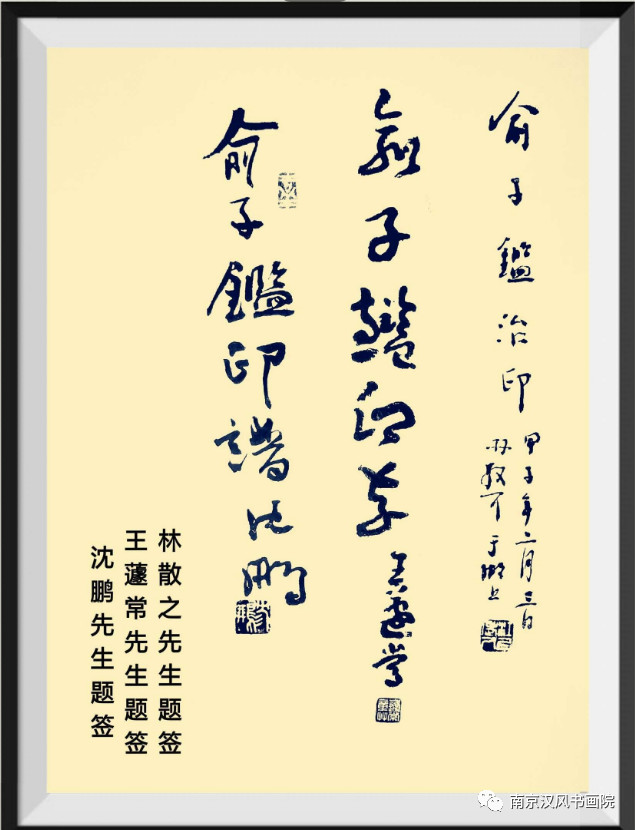 俞子鑑治印
甲子年二月三日
林散耳于湖上
俞子鑑印草
王蘧常
俞子鑑印譜
沈鹏
林散之先生题签
王蘧常先生题签
沈鹏先生题签
南京汉风书画院